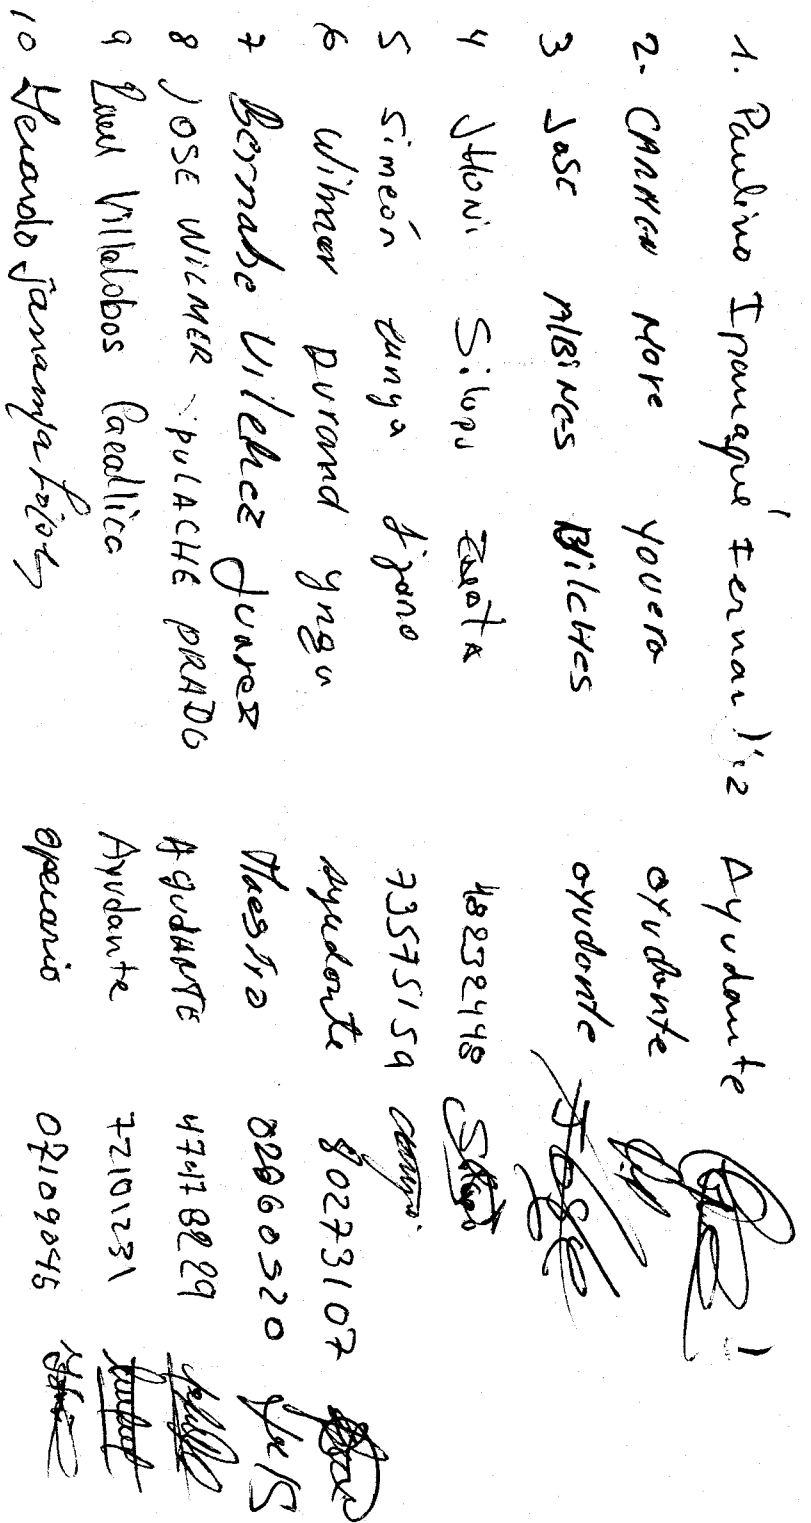 1. Paulino Ipanaqué Fernandez Ayudante
2. CARMEN More Youera ayudante
3 Jose AlBiNes BilcHes ayudante Jose
4 JHoNi Silupu Zapata 48832448
5 Simeón zunga 73575159
6 Wilmer Durand yngu Ayudante 80273107
7 Bernabe Vilchez Juarez Maestro 02860520
8 JOSE WILMER PULACHE PRADO AyudANTE 47478229
9 Villalobos Ayudante 72101231
10 operario 07109045